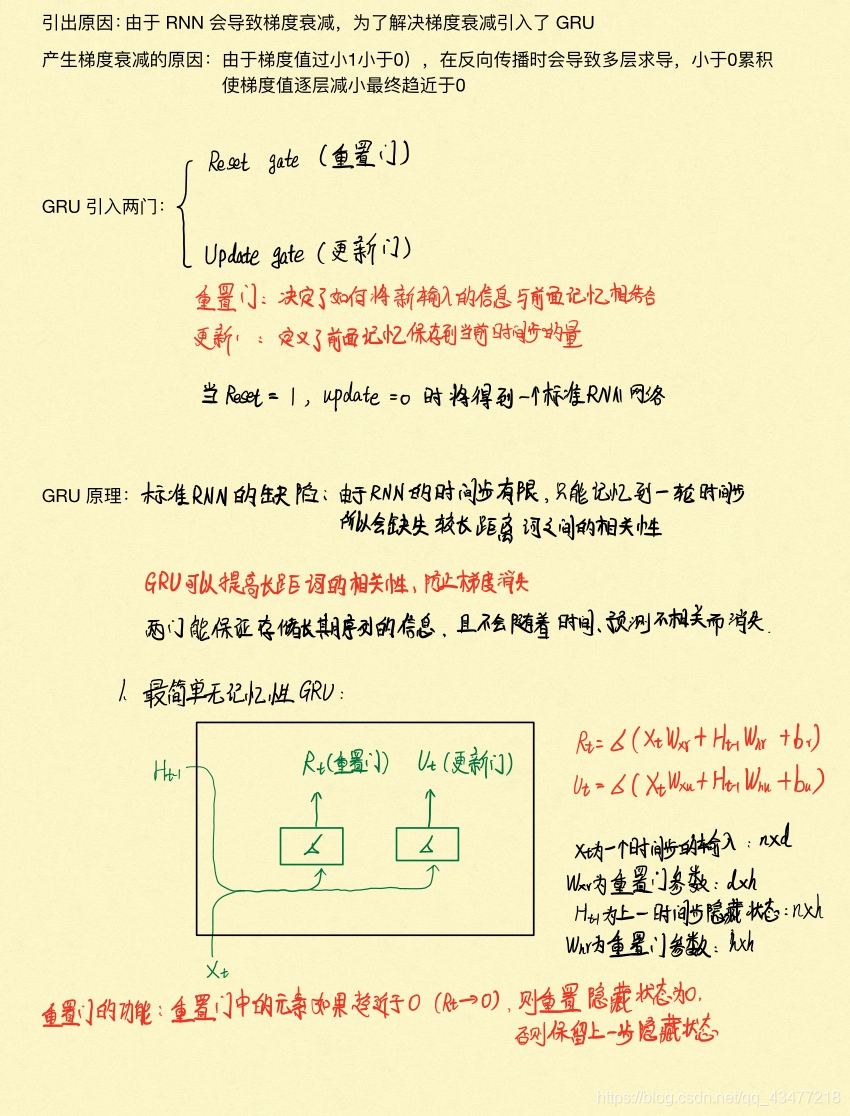 引出原因：由于 RNN 会导致梯度衰减，为了解决梯度衰减引入了 GRU
产生梯度衰减的原因：由于梯度值过小1小于0），在反向传播时会导致多层求导，小于0累积
使梯度值逐层减小最终趋近于0
Reset gate (重置门)
GRU 引入两门：
Update gate (更新门)
重置门：决定了如何将新输入的信息与前面记忆相结合
更新门：定义了前面记忆保存到当前时间步的量
当 Reset = 1, update = 0 时将得到一个标准RNN网络
GRU 原理：标准RNN的缺陷：由于RNN的时间步有限，只能记忆到一轮时间步
所以会缺失较长距离词之间的相关性
GRU可以提高长距词的相关性、防止梯度消失
两门能保证存储长期序列的信息，且不会随着时间、预测不相关而消失.
1. 最简单无记忆性GRU：
Ht-1
Rt(重置门) Ut(更新门)
Rt = σ(XtWxr + Ht-1Whr + br)
Ut = σ(XtWxu + Ht-1Whu + bu)
σ σ
Xt为一个时间步的输入：n×d
Wxr为重置门参数：d×h
Ht-1为上一时间步隐藏状态：n×h
Whr为重置门参数：h×h
Xt
重置门的功能：重置门中的元素如果趋近于0 (Rt→0)，则重置隐藏状态为0，
否则保留上一步隐藏状态
https://blog.csdn.net/qq_43477218